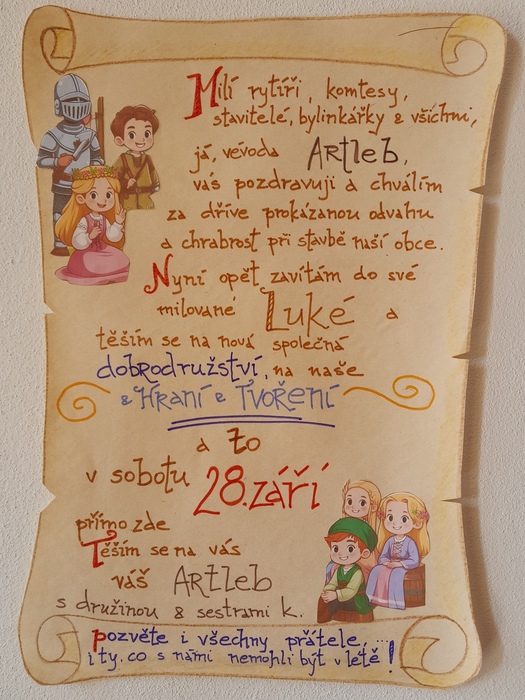 Milí rytíři, komtesy,
stavitelé, bylinkářky & všichni,
já, vévoda Artleb,
vás pozdravuji a chválím
za dříve prokázanou odvahu
a chrabrost při stavbě naší obce.
Nyní opět zavítám do své
milované Luké a
těším se na nová společná
dobrodružství, na naše
& Hraní & Tvoření
a to
v sobotu 28. září
přímo zde
Těším se na vás
váš Artleb
s družinou & sestrami K.
pozvěte i všechny přátele, ...
i ty, co s námi nemohli být v létě!